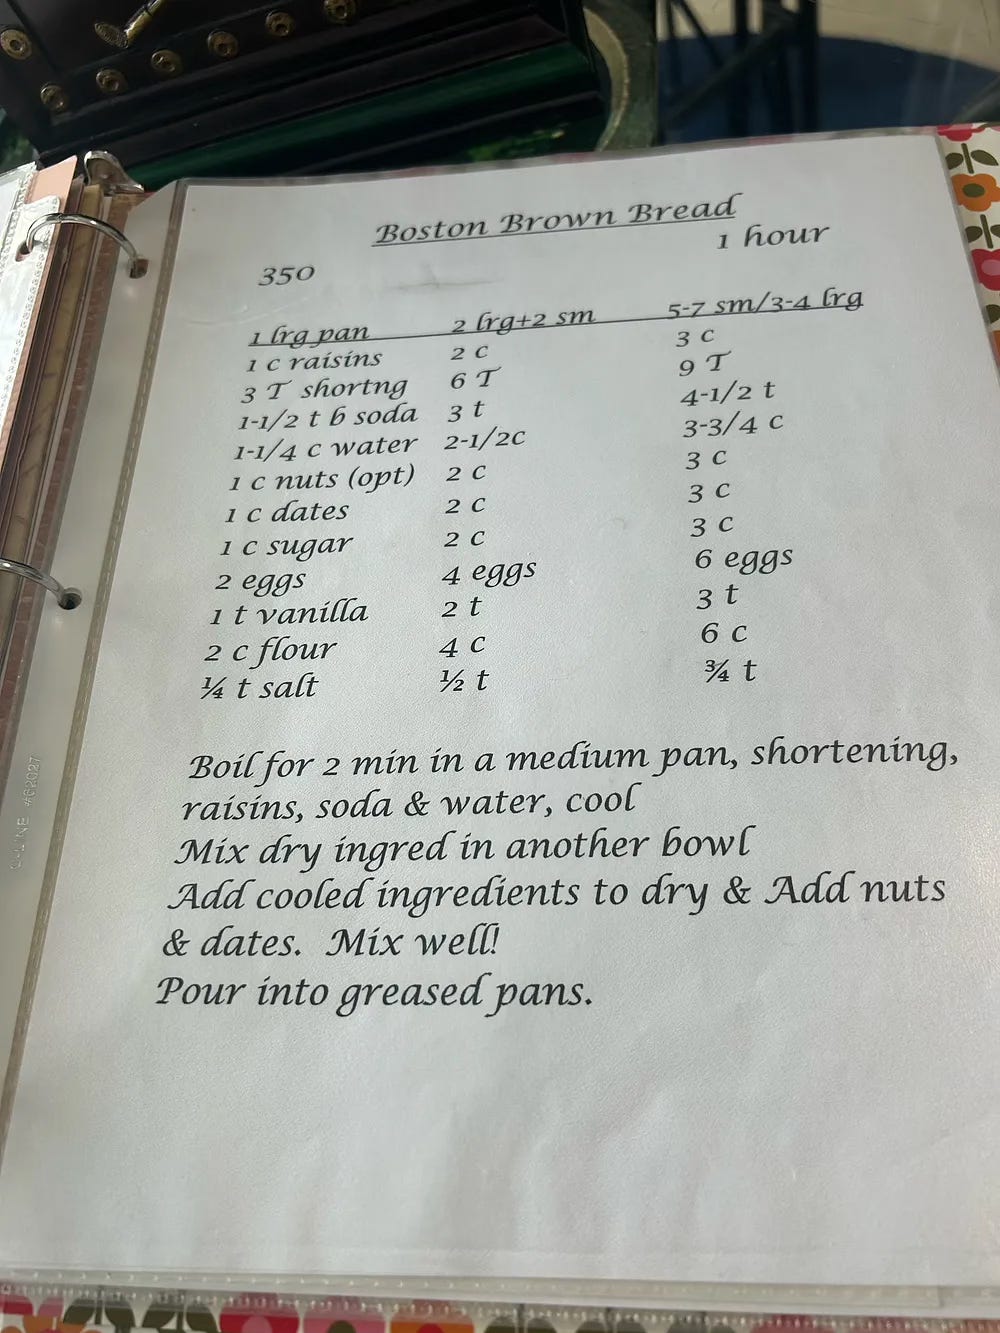 Boston Brown Bread
350 1 hour
1 lrg pan 2 lrg+2 sm 5-7 sm/3-4 lrg
1 c raisins 2 c 3 c
3 T shortng 6 T 9 T
1-1/2 t b soda 3 t 4-1/2 t
1-1/4 c water 2-1/2c 3-3/4 c
1 c nuts (opt) 2 c 3 c
1 c dates 2 c 3 c
1 c sugar 2 c 3 c
2 eggs 4 eggs 6 eggs
1 t vanilla 2 t 3 t
2 c flour 4 c 6 c
¼ t salt ½ t ¾ t
Boil for 2 min in a medium pan, shortening,
raisins, soda & water, cool
Mix dry ingred in another bowl
Add cooled ingredients to dry & Add nuts
& dates. Mix well!
Pour into greased pans.